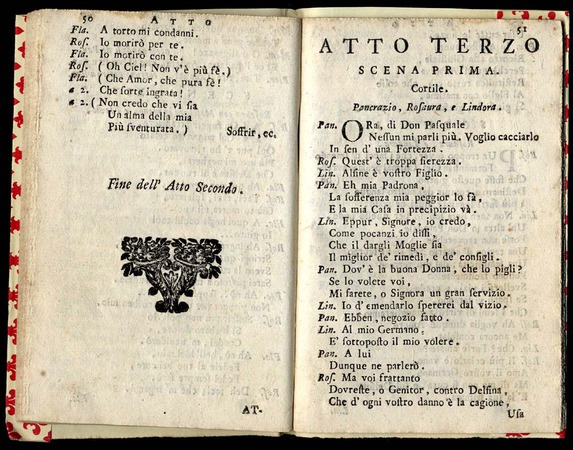 50 ATTO
Fla. A torto mi condanni.
Ros. Io morirò per te.
Fla. Io morirò con te.
Ros. ( Oh Ciel! Non v'è più fè.)
Fla. ( Che Amor, che pura fè!
a 2. Che sorte ingrata!
a 2. ( Non credo che vi sia
Un alma della mia
Più sventurata. ) Soffrir, ec.
Fine dell' Atto Secondo.
AT-
51
ATTO TERZO
SCENA PRIMA.
Cortile.
Pancrazio, Rosaura, e Lindora.
Pan. ORa, di Don Pasquale
Nessun mi parli più. Voglio cacciarlo
In sen d' una Fortezza.
Ros. Quest' è troppa fierezza.
Lin. Alfine è vostro Figlio.
Pan. Eh mia Padrona,
La sofferenza mia peggior lo fà,
E la mia Casa in precipizio và.
Lin. Eppur, Signore, io credo,
Come pocanzi io dissi,
Che il dargli Moglie sia
Il miglior de' rimedi, e de' consigli.
Pan. Dov' è la buona Donna, che lo pigli?
Se lo volete voi,
Mi farete, o Signora un gran servizio.
Lin. Io d' emendarlo spererei dal vizio.
Pan. Ebben, negozio fatto.
Lin. Al mio Germano,
E' sottoposto il mio volere.
Pan. A lui
Dunque ne parlerò.
Ros. Ma voi frattanto
Dovreste, o Genitor, contro Delfina,
Che d' ogni vostro danno è la cagione,
Usa